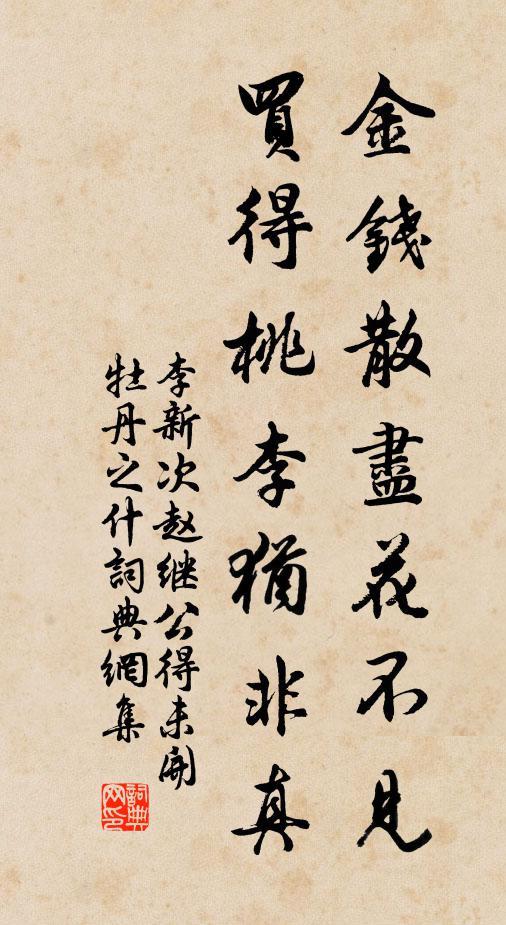 金錢散盡花不見
買得桃李猶非真
李新次赵继公得未開
牡丹之什詞典網集
詞典網印